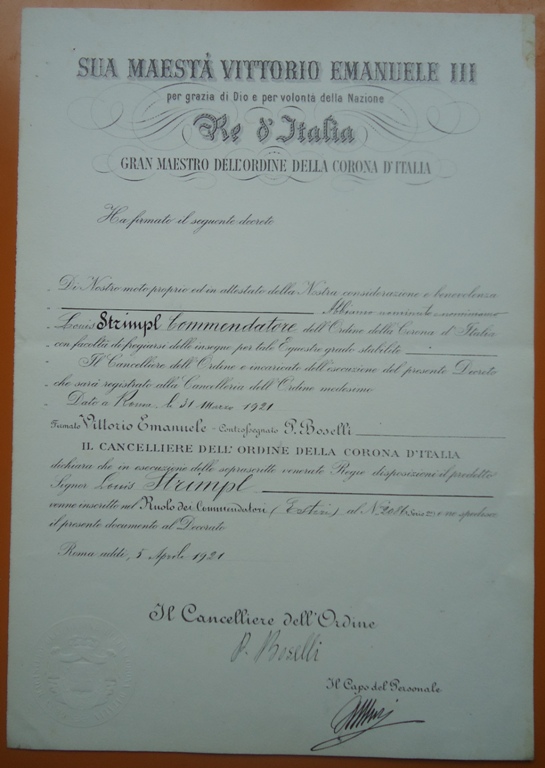 SUA MAESTÀ VITTORIO EMANUELE III
per grazia di Dio e per volontà della Nazione
Re d'Italia
GRAN MAESTRO DELL'ORDINE DELLA CORONA D'ITALIA
Ha firmato il seguente decreto
Di Nostro moto proprio ed in attestato della Nostra considerazione e benevolenza
Abbiamo nominato e nominiamo
Louis Strimpl Commendatore dell'Ordine della Corona d'Italia
con facoltà di fregiarsi delle insegne per tale Equestre grado stabilite
Il Cancelliere dell'Ordine è incaricato dell'esecuzione del presente Decreto
che sarà registrato alla Cancelleria dell'Ordine medesimo
Dato a Roma, li 31 Marzo 1921
Firmato Vittorio Emanuele - Controssegnato P. Boselli
IL CANCELLIERE DELL'ORDINE DELLA CORONA D'ITALIA
dichiara che in esecuzione delle soprascritte venerate Regie disposizioni il predetto
Signor Louis Strimpl
venne inscritto nel Ruolo dei Commendatori (Esteri) al N. e ne spedisce
il presente documento al Decorato
Roma addì, 5 Aprile 1921
Il Cancelliere dell'Ordine
P. Boselli
Il Capo del Personale